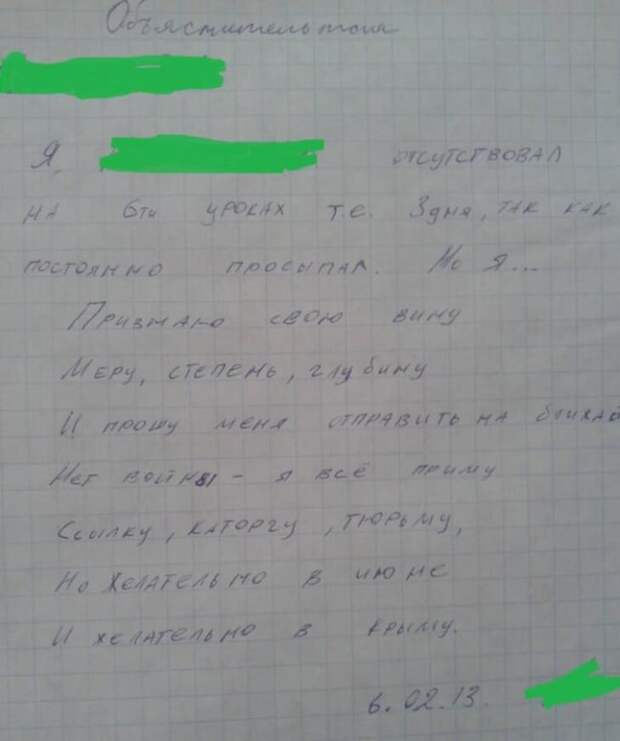 Объяснительная
Я, отсутствовал
на 6ти уроках т.е. 3 дня, так как
постоянно просыпал. Но я...
Признаю свою вину
Меру, степень, глубину
И прошу меня отправить на
Нет войны - я всё приму
Ссылку, каторгу, тюрьму,
Но желательно в июне
И желательно в крыму.
6.02.13.